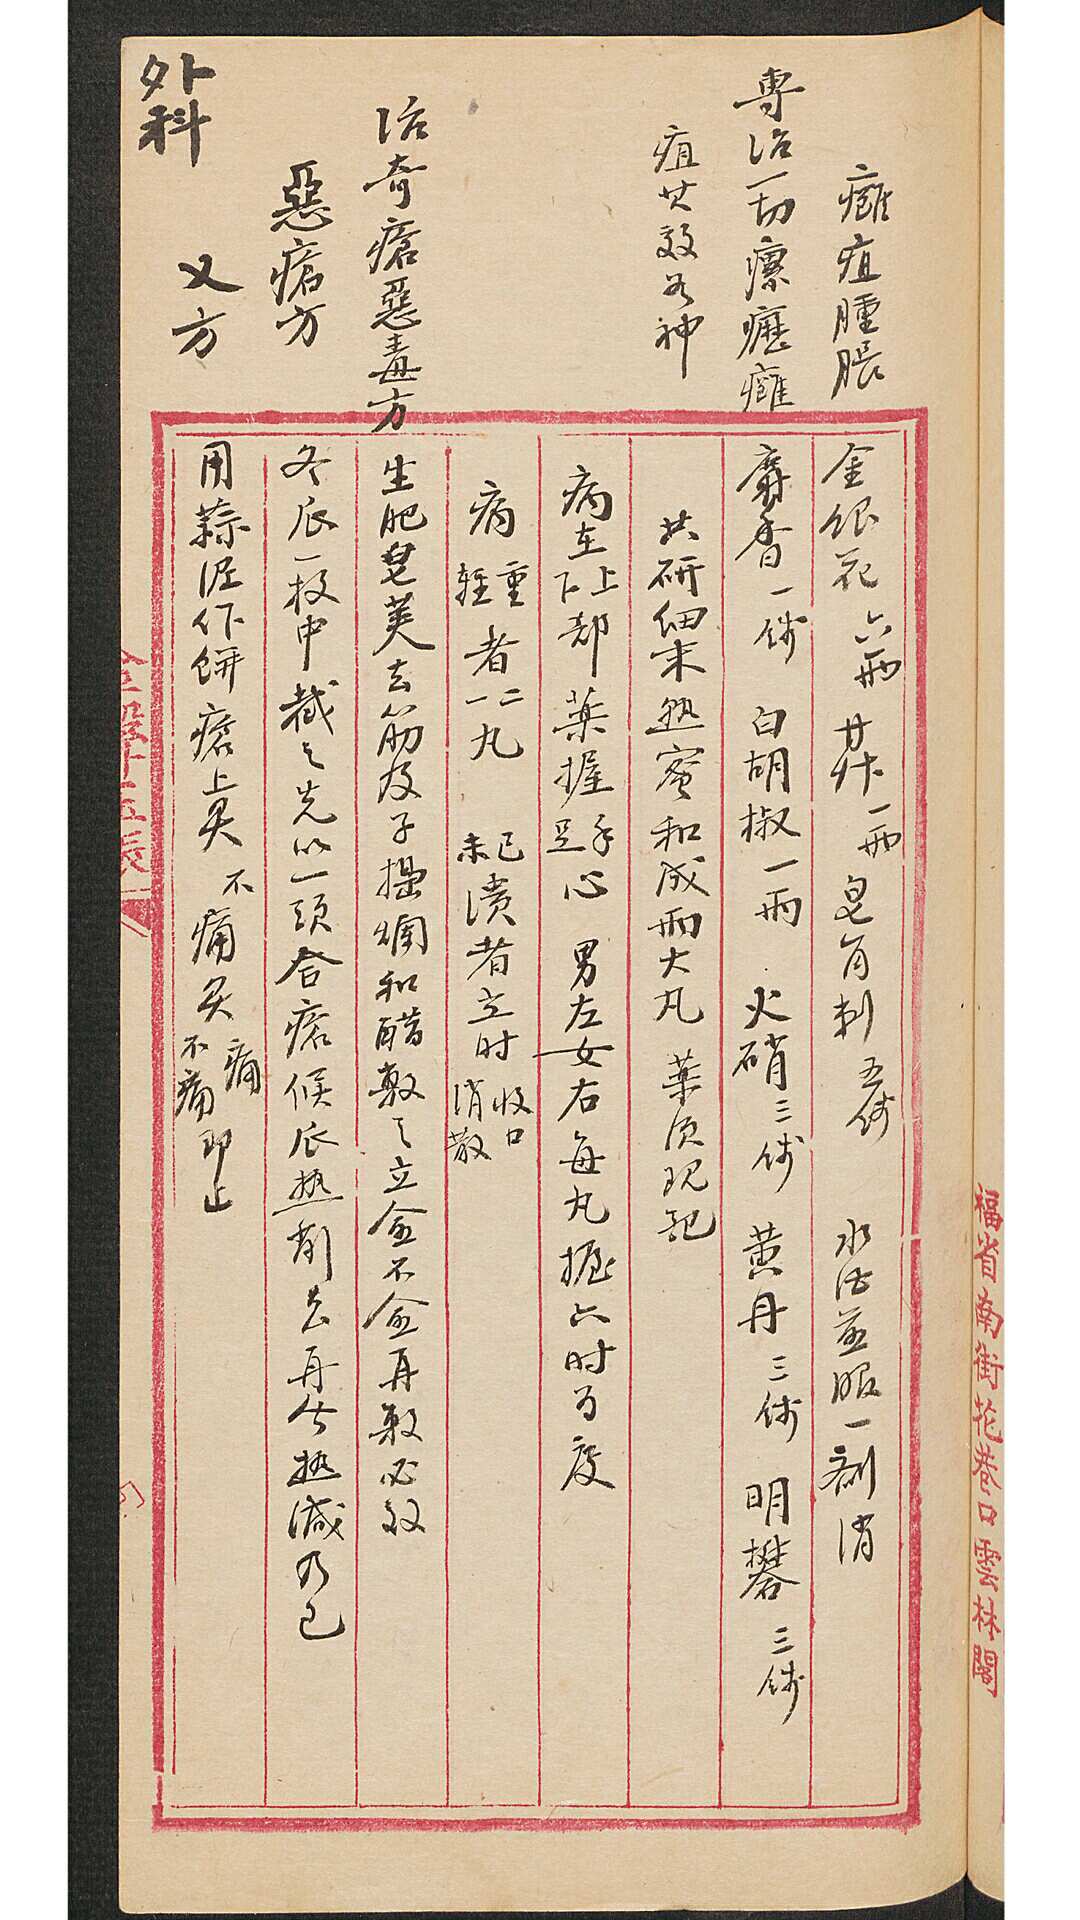 癰疽腫脹
金銀花六兩 甘艸一兩 皂角刺五錢 水酒並服一劑消
專治一切瘰癧癰
疽其效如神
麝香一錢 白胡椒一兩 火硝三錢 黄丹三錢 明礬三錢
共研細末熟蜜和成兩大丸 藥須現配
病在上下部 藥握手足心 男左女右每丸握六时为度
病重輕者二一丸 已未潰者立时收口消散
治奇瘡惡毒方
生肥皂莢去筋及子搗爛和醋敷之立愈不愈再敷必效
惡瘡方
冬瓜一枚中截之先以一頭合瘡候瓜热削去再合热减乃已
外科
又方
用蒜泥作餅瘡上灸不痛灸痛 痛灸不痛即止
福省南街花巷口雲林閣